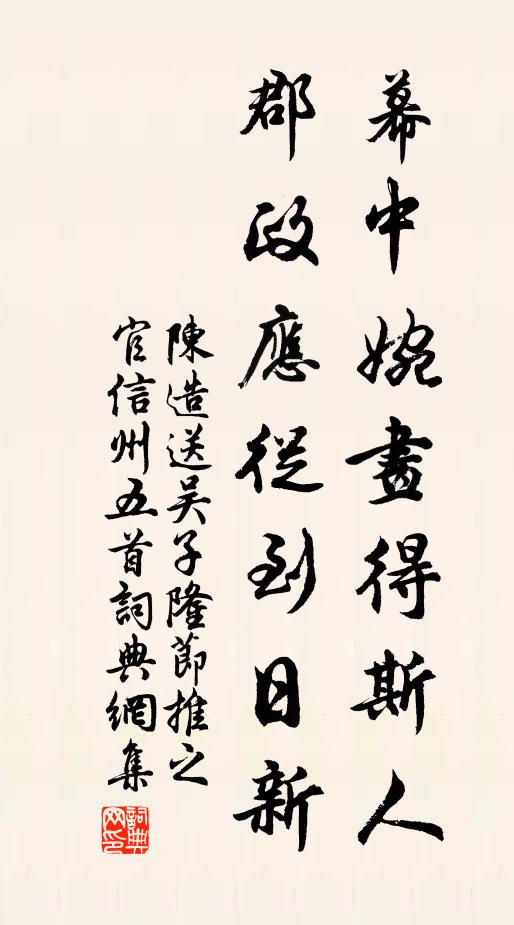 幕中婉畫得斯人
郡政應從到日新
陳造送吴子隆節推之
官信州五首詞典網集
詞典网印